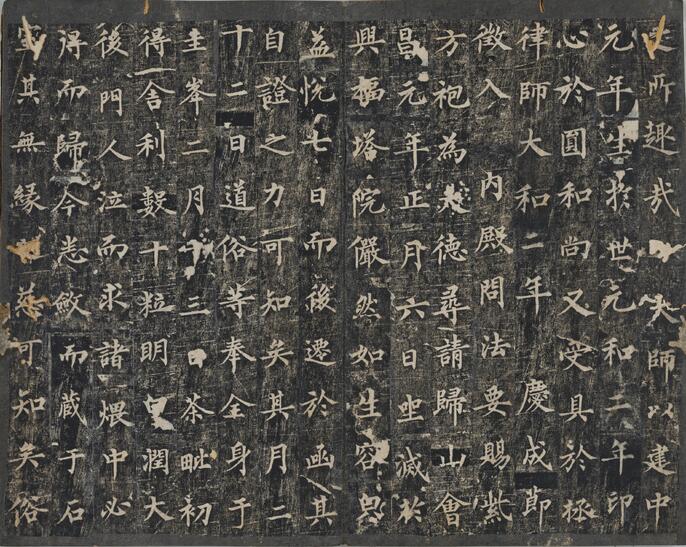 所趣哉 大師以建中
元年生於世元和二年印
心於圓和尚又受具於拯
律師大和二年 慶成節
徵入 內殿問法要賜紫
方袍為大德尋請歸山會
昌元年正月六日坐滅於
興福塔院儼然如生容皃
益悅七日而後遷於函其
自證之力可知矣其月二
十二日道俗等奉全身于
圭峯二月十三日茶毗初
得舍利數十粒明白潤大
後門人泣而求諸煨中必
得而歸今悉斂而藏于石
室其無緣之慈可知矣俗